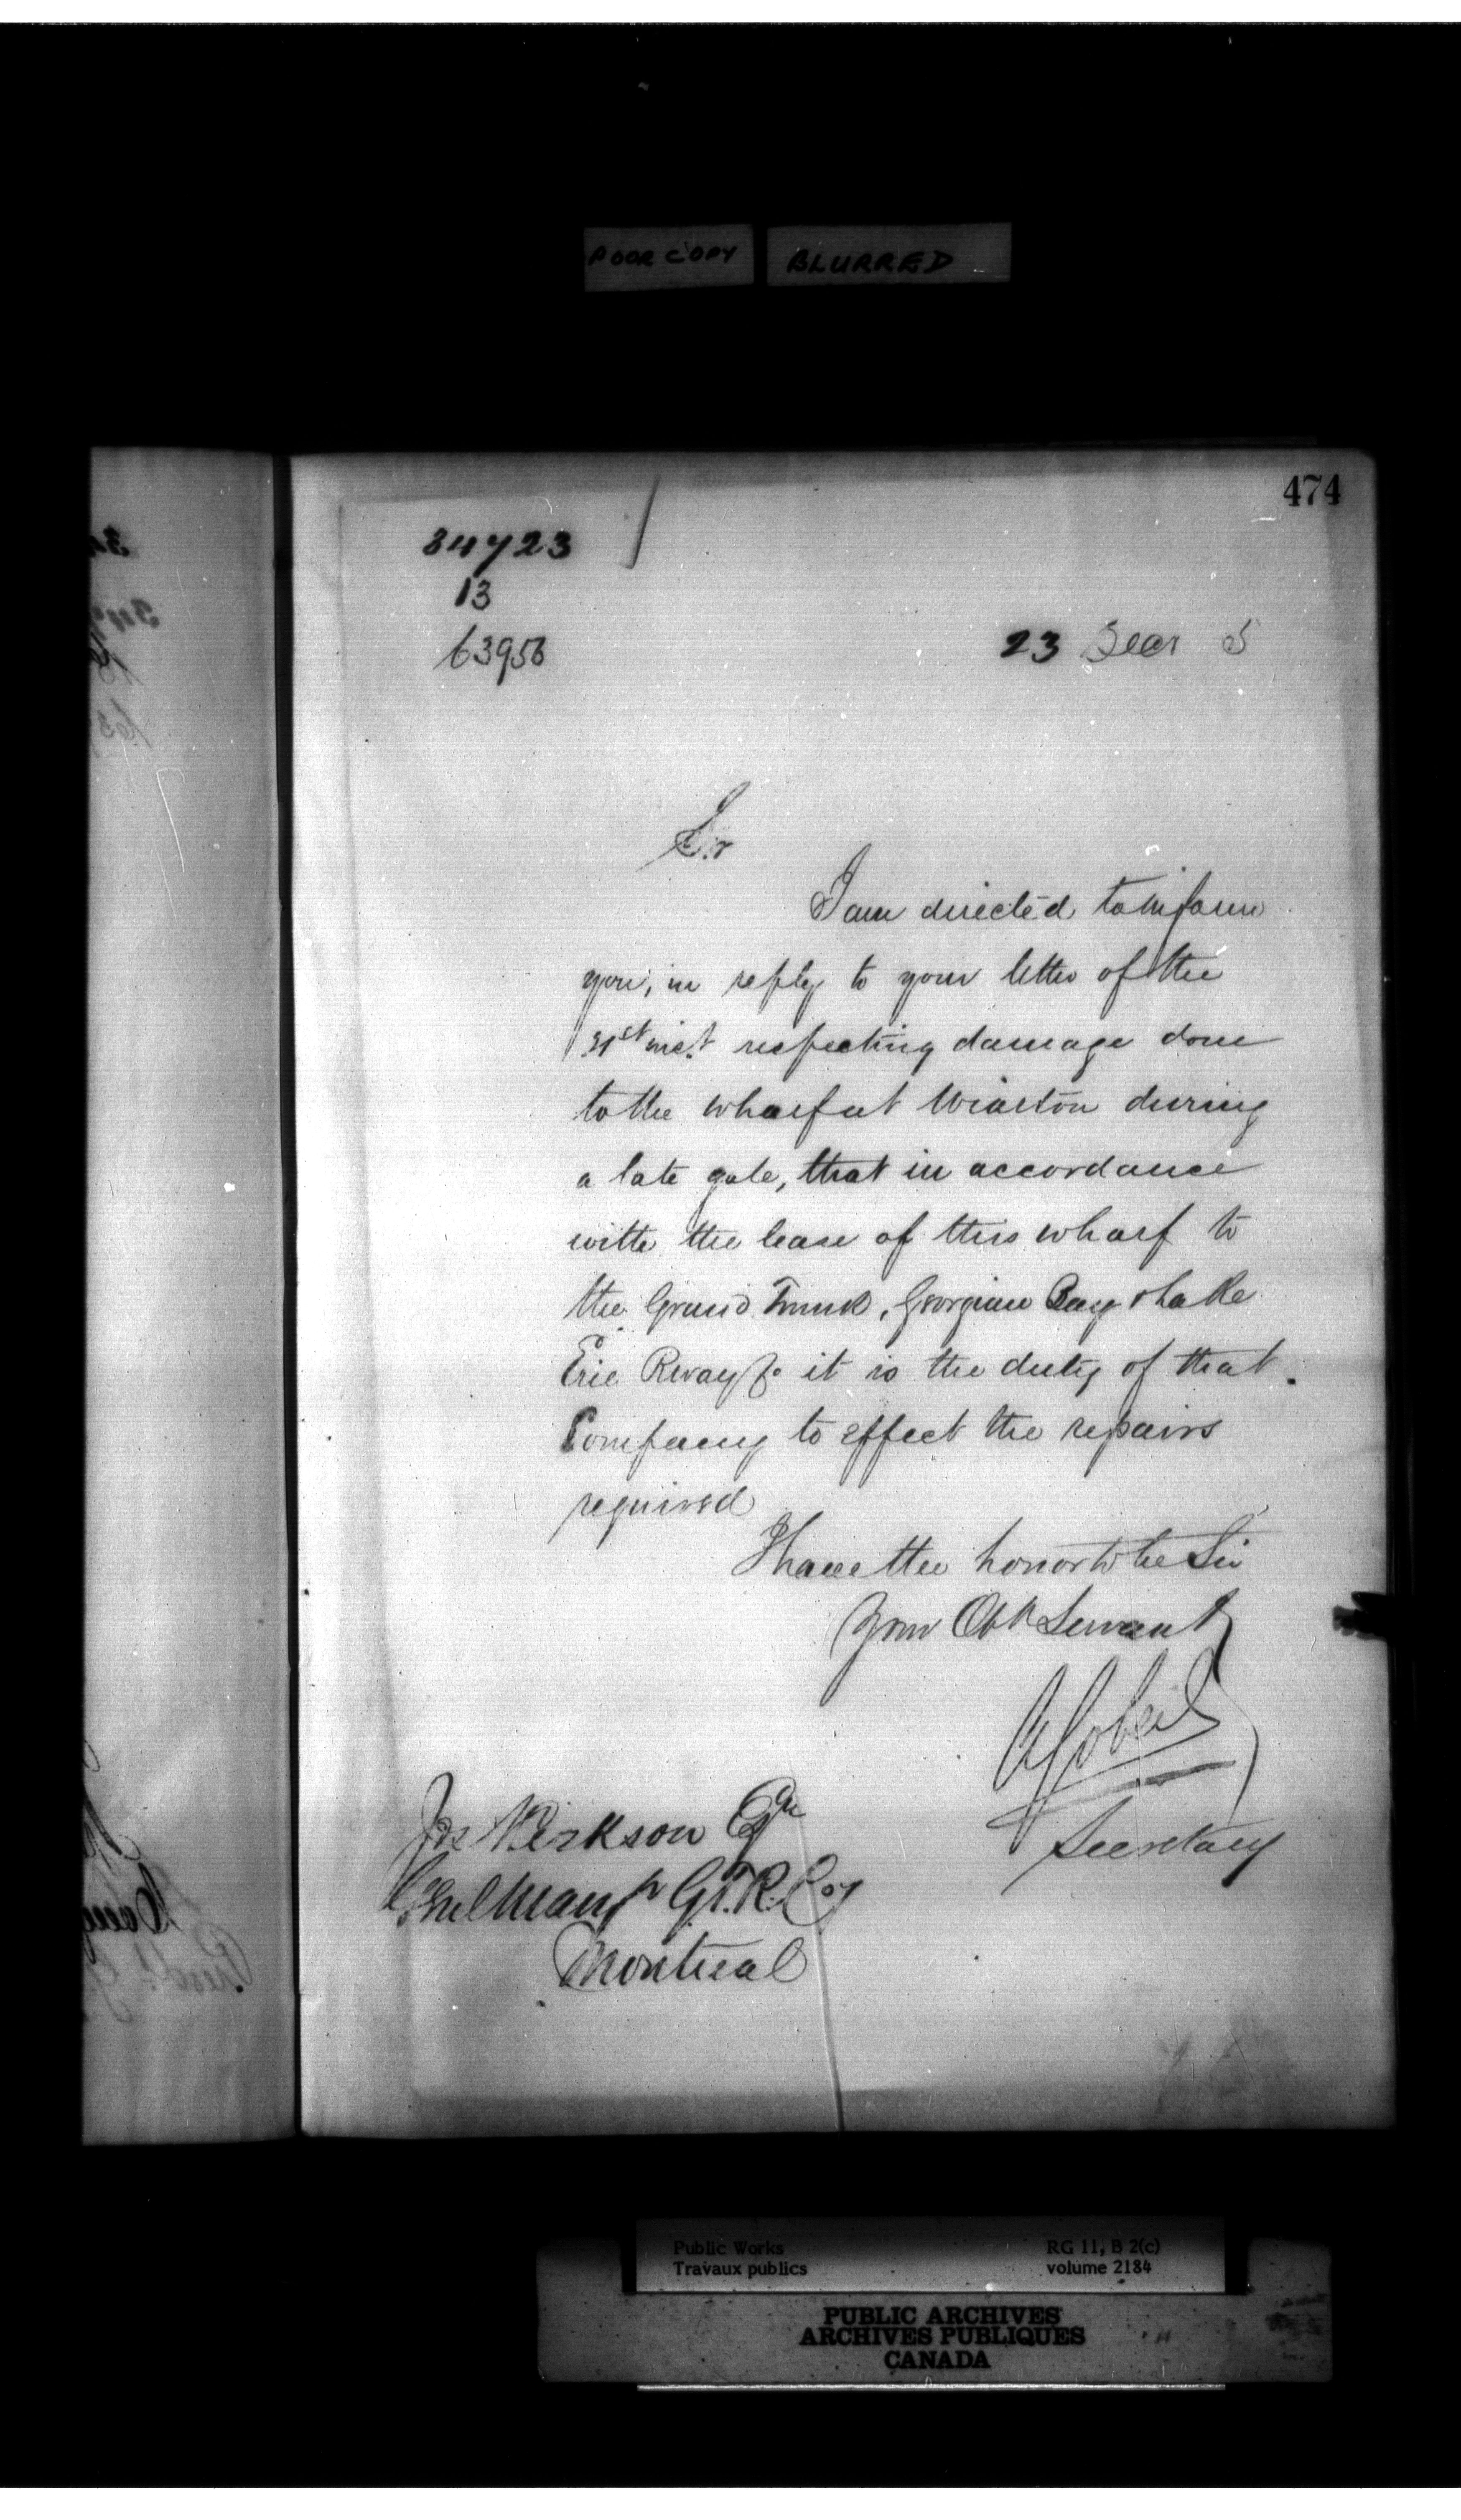 POOR COPY BLURRED
474
34723
13
63956
23 Decr 5
Sir
I am directed to inform
you, in reply to your letter of the
21st inst respecting damage done
to the wharf at Wiarton during
a late gale, that in accordance
with the lease of this wharf to
the Grand Trunk, Georgian Bay & Lake
Erie Rway Co it is the duty of that
Company to effect the repairs
required
I have the honor to be Sir
Your Obt Servant
A Gobeil
Secretary
Jos Hickson Esqre
Genl Mangr G.T.R. Coy
Montreal
Public Works RG 11, B 2(c)
Travaux publics volume 2184
PUBLIC ARCHIVES
ARCHIVES PUBLIQUES
CANADA